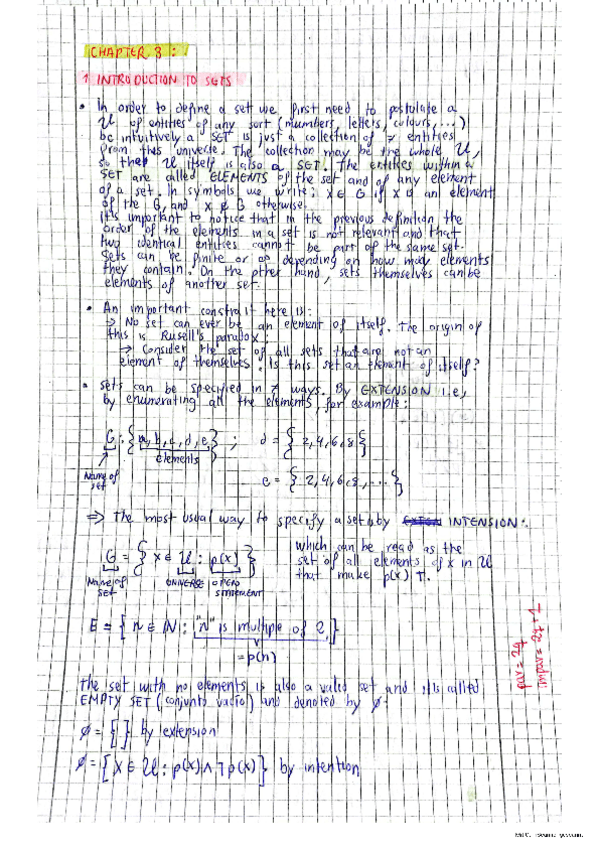 CHAPTER 3:
1. INTRODUCTION TO SETS
• In order to define a set we first need to postulate a
U of entities of any sort (numbers, letters, colours, ...)
bc intuitively a SET is just a collection of ≠ entities
from this universe. The collection may be the whole U,
so that U itself is also a SET. The entities within a
SET are called ELEMENTS of the set and of any element
of a set. In symbols we write: x ∈ G if x is an element
of the G, and x ∉ G otherwise.
it's important to notice that in the previous definition the
order of the elements in a set is not relevant and that
two identical entities cannot be part of the same set.
Sets can be finite or ∞ depending on how many elements
they contain. On the other hand, sets themselves can be
elements of another set.
• An important constrait here is:
→ No set can ever be an element of itself. The origin of
this is Rusell's paradox:
→ Consider the set of all sets that are not an
element of themselves. Is this set an element of itself?
• sets can be specified in ≠ ways. By EXTENSION i.e,
by enumerating all the elements, for example:
G: {a, b, c, d, e} ; d = {2,4,6,8}
elements
Name of
set
e = {2,4,6,8,...}
⇒ The most usual way to specify a set is by INTENSION:
G = {x ∈ U : p(x)}
Name of
SET
UNIVERSE
OPEN
STATEMENT
which can be read as the
set of all elements of x in U
that make p(x) T.
E = {n ∈ N : "n" is multiple of 2}
= p(n)
par = 2q
impar = 2q + 1
The set with no elements is also a valid set and it is called
EMPTY SET (conjunto vacío) and denoted by ∅.
∅ = {} by extension
∅ = {x ∈ U : p(x) ∧ ¬p(x)} by intention